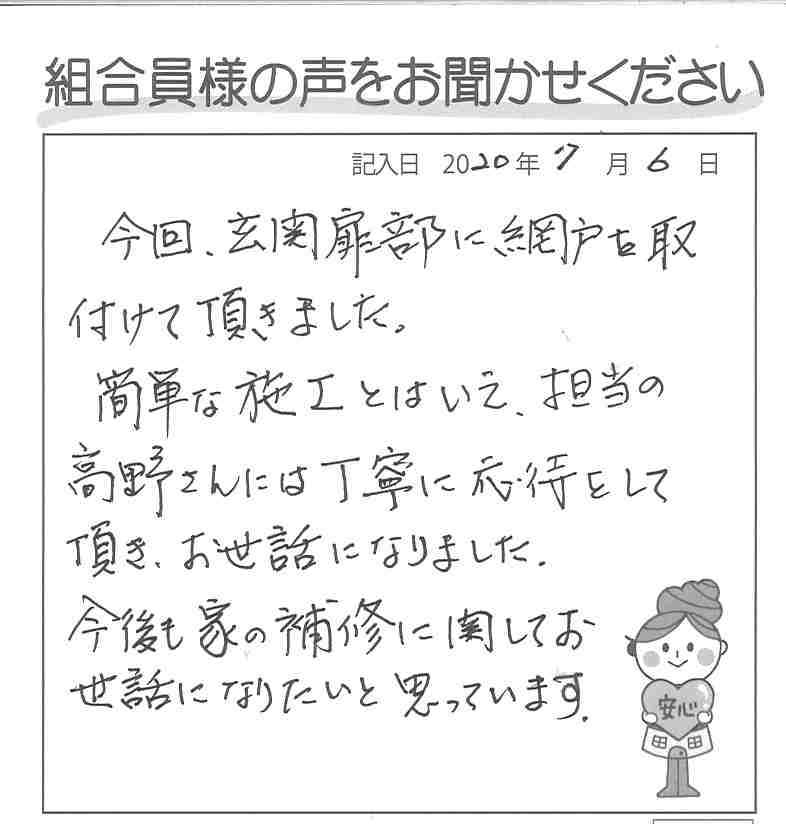 組合員様の声をお聞かせください
記入日 2020年7月6日
今回、玄関扉部に網戸を取
付けて頂きました。
簡単な施工とはいえ、担当の
高野さんには丁寧に応待をして
頂き、お世話になりました.
今後も家の補修に関してお
世話になりたいと思っています.
安心